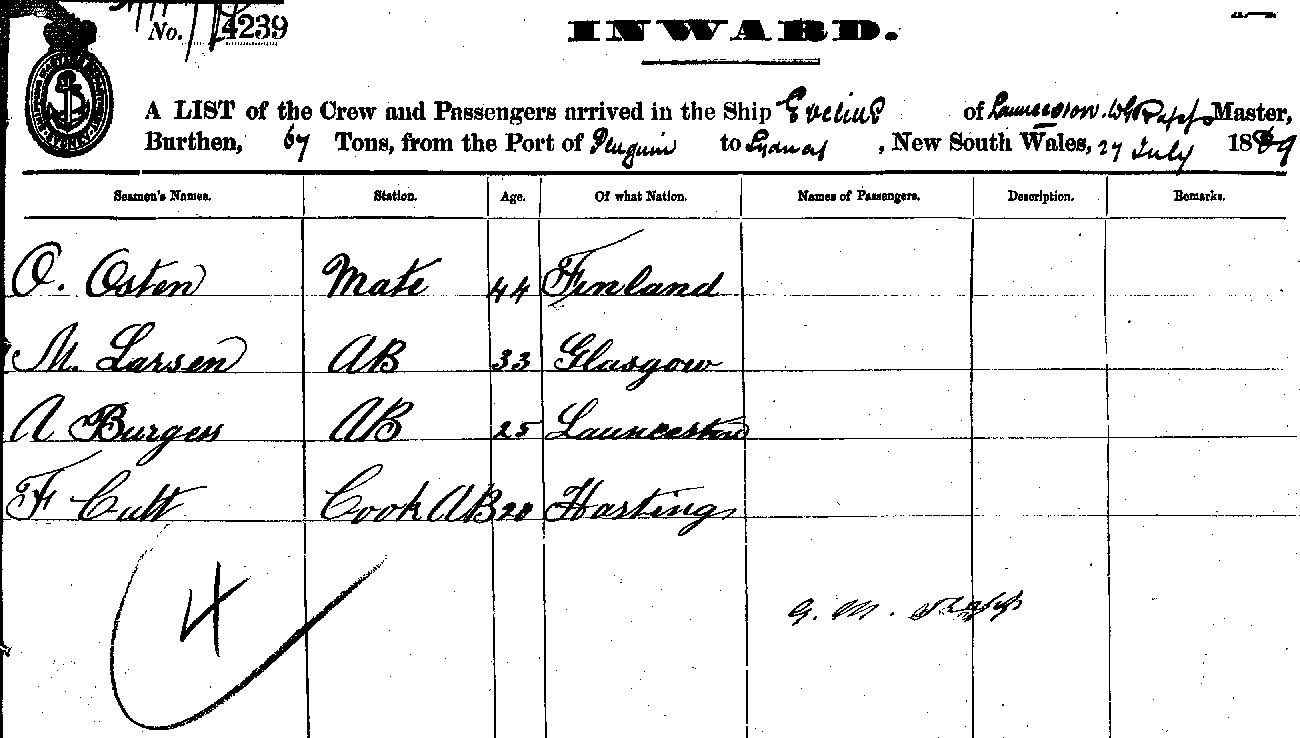 No. 4239
INWARD.
A LIST of the Crew and Passengers arrived in the Ship of Launceston Master,
Burthen, 67 Tons, from the Port of Penguin to Sydney, New South Wales, 27 July 1889
Seamen's Names. Station. Age. Of what Nation. Names of Passengers. Description. Remarks.
O. Osten Mate 44 Finland
M. Larsen AB 33 Glasgow
A Burgess AB 25 Launceston
F Cutt Cook AB 20 Hastings
4
G. M.